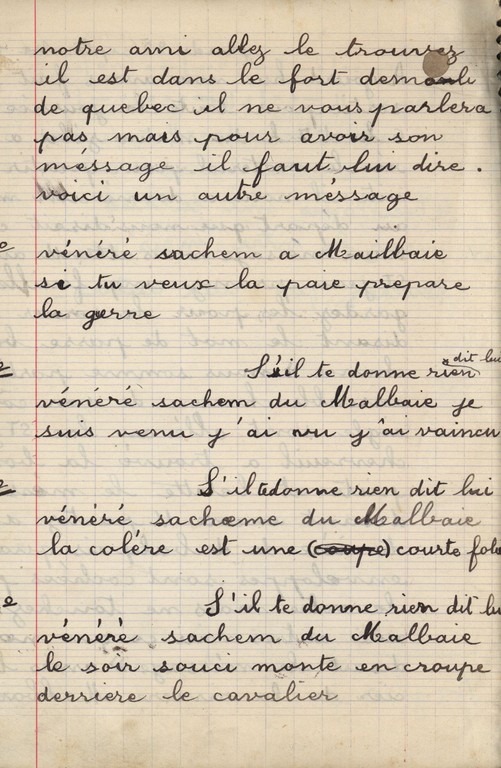 notre ami allez le trouvez
il est dans le fort demonli
de quebec il ne vous parlera
pas mais pour avoir son
message il faut lui dire.
voici un autre méssage
e vénéré sachem a Mailbaie
si tu veux la paie prepare
la guerre
S'il te donne rien dit lui
vénéré sachem du Malbaie je
suis venu j'ai vu j'ai vaincu
S'il te donne rien dit lui
vénéré sacheme du Malbaie
la colére est une (coupe) courte folie
e S'il te donne rien dit lui
vénéré sachem du Malbaie
le soir souci monte en croupe
derriere le cavalier